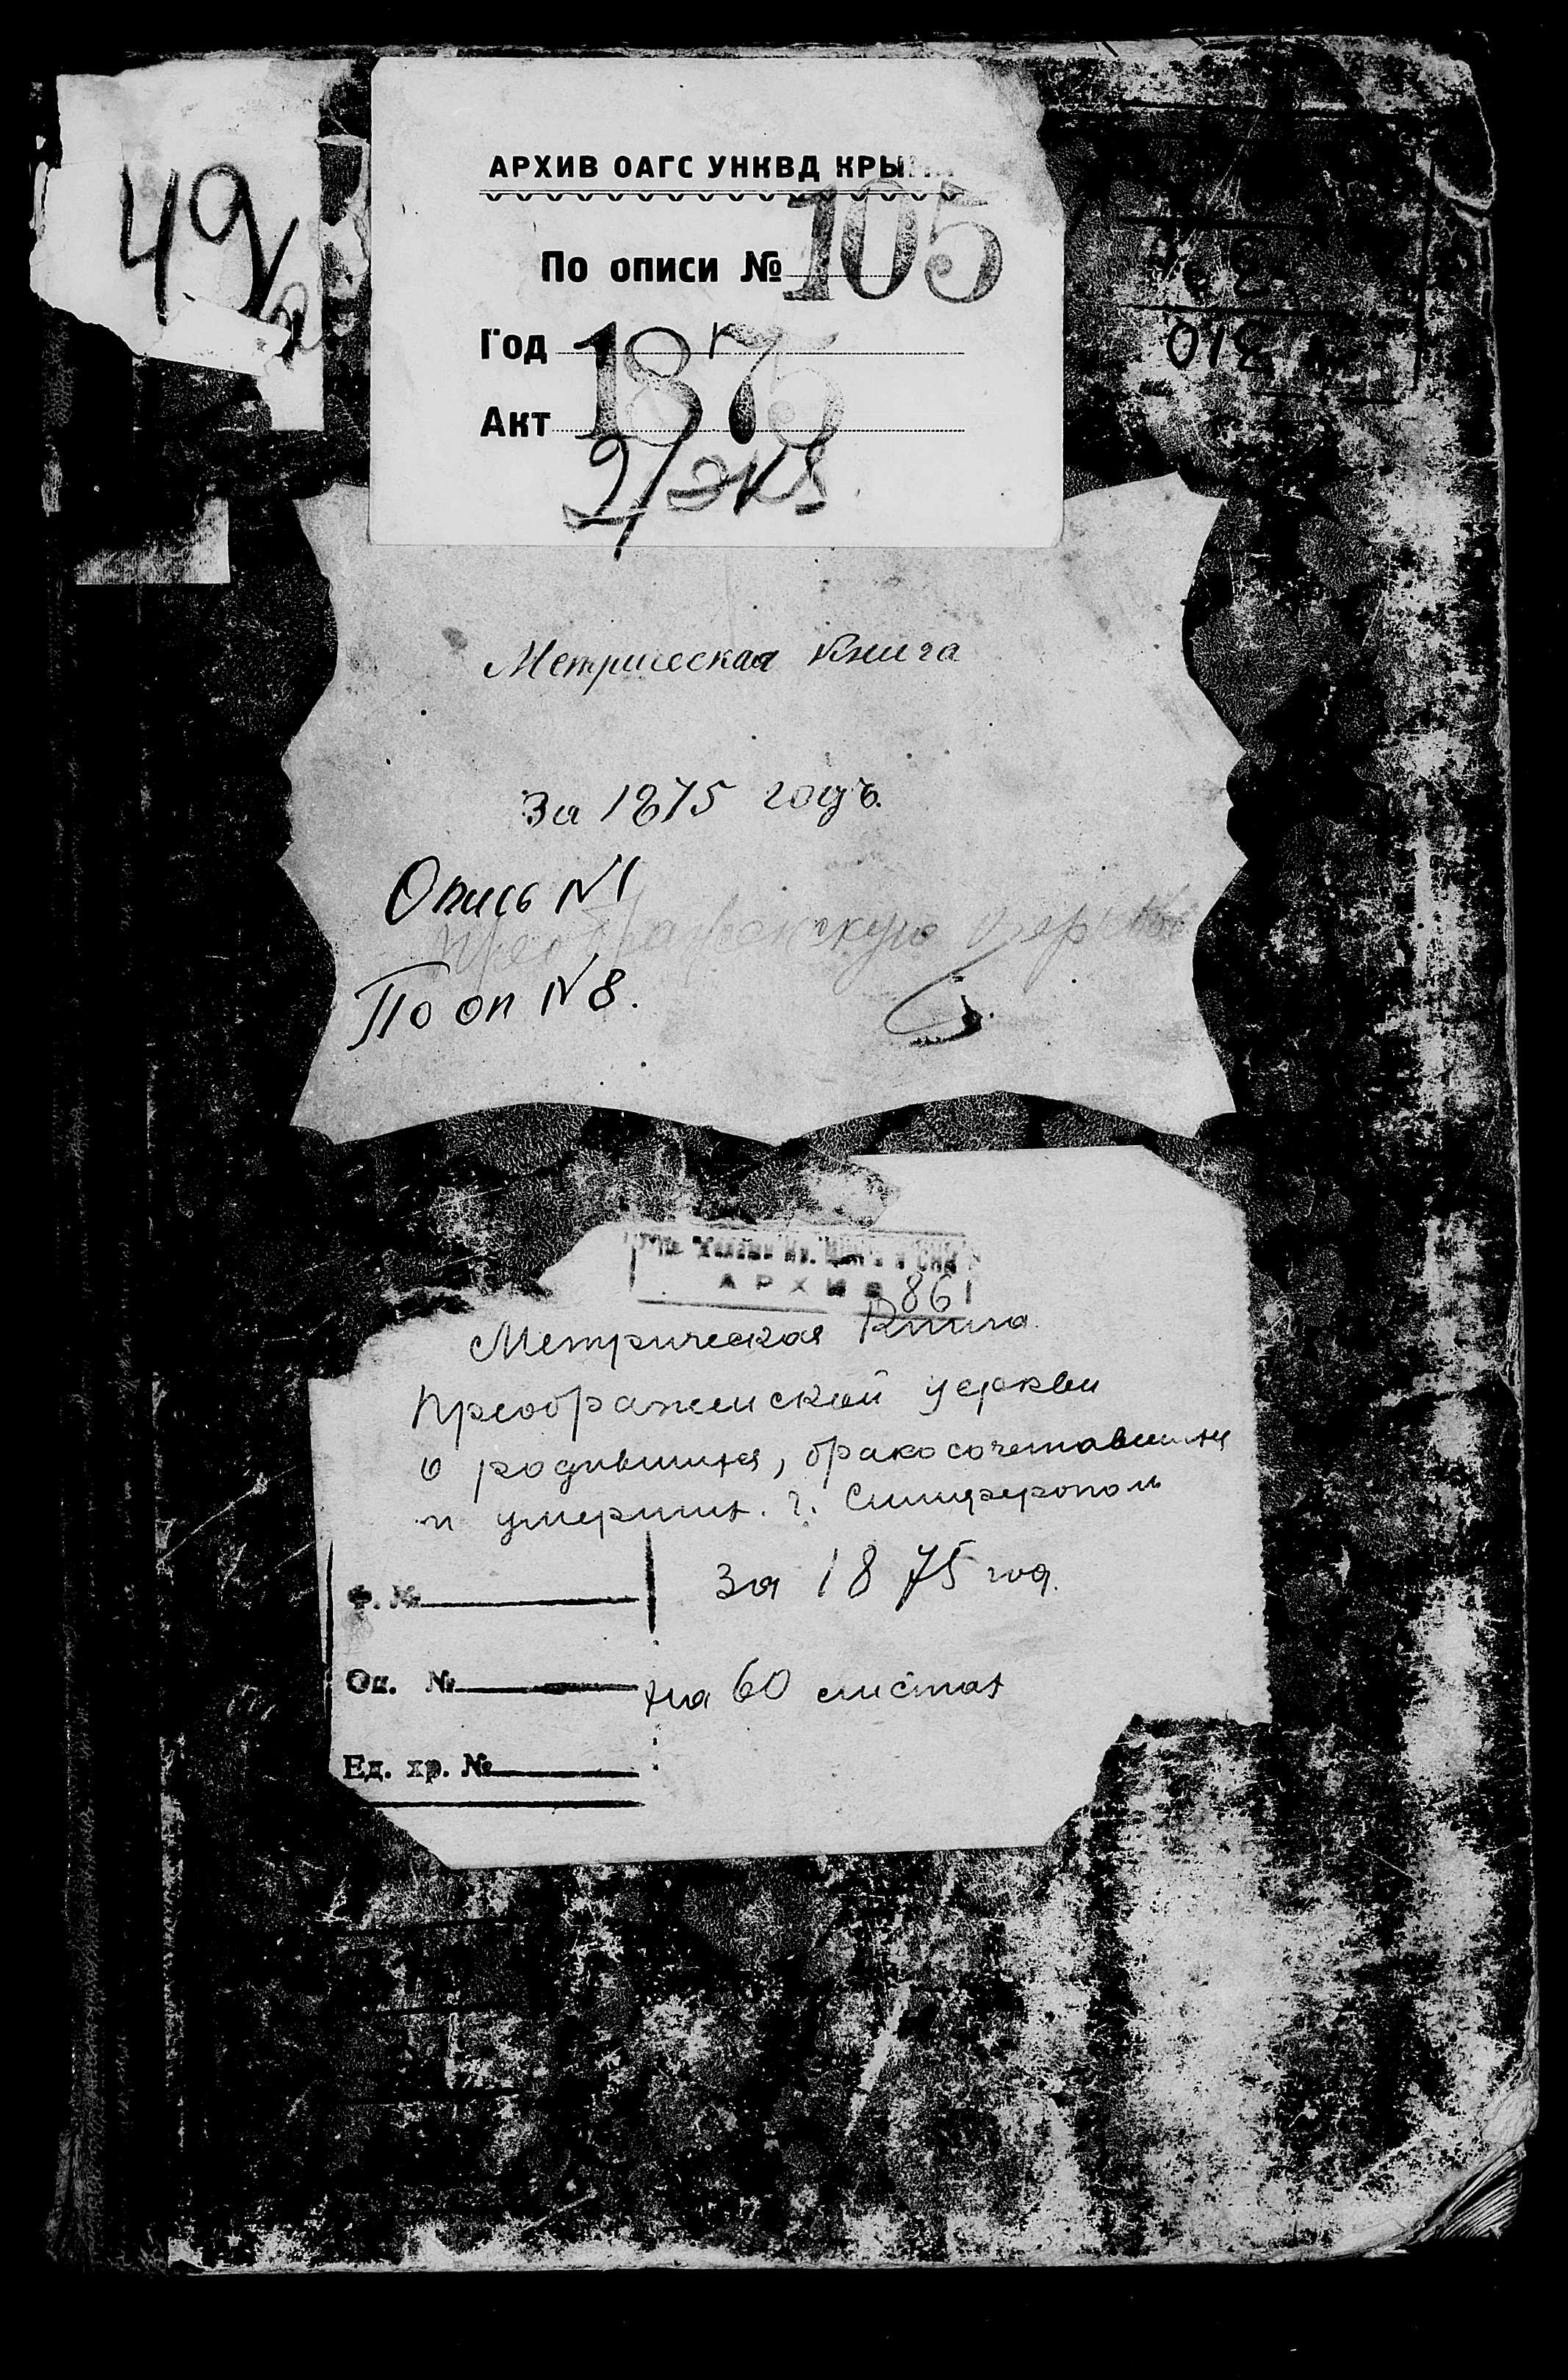 49
АРХИВ ОАГС УНКВД КРЫ
По описи № 105
Год 1875
Акт
2/экз.
310
Метрическая книга
За 1875 годъ.
Опись N1
Преображенскую церковь
По оп N8.
АРХИВ
861
Метрическая Книга
Преображенской церкви
о родившихся, бракосочетавшихся
и умерших. г. Симферополь
за 1875 год.
Ф. №
Оп. №
на 60 листах
Ед. хр. №